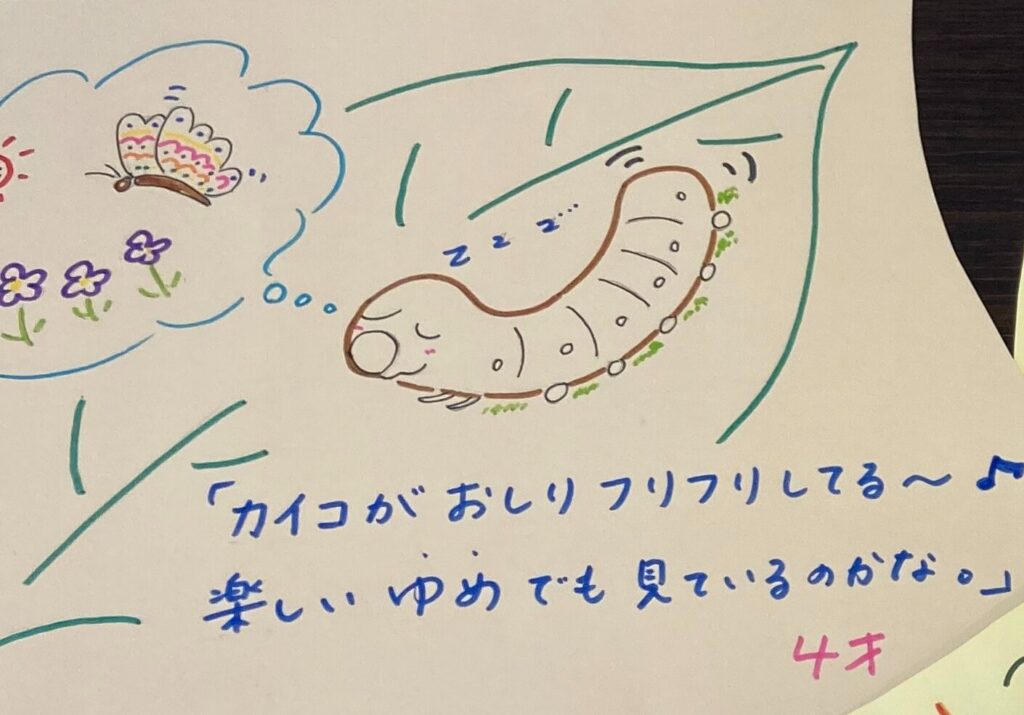 z z z…
「カイコがおしりフリフリしてる〜♪
楽しいゆめでも見ているのかな。」
4才